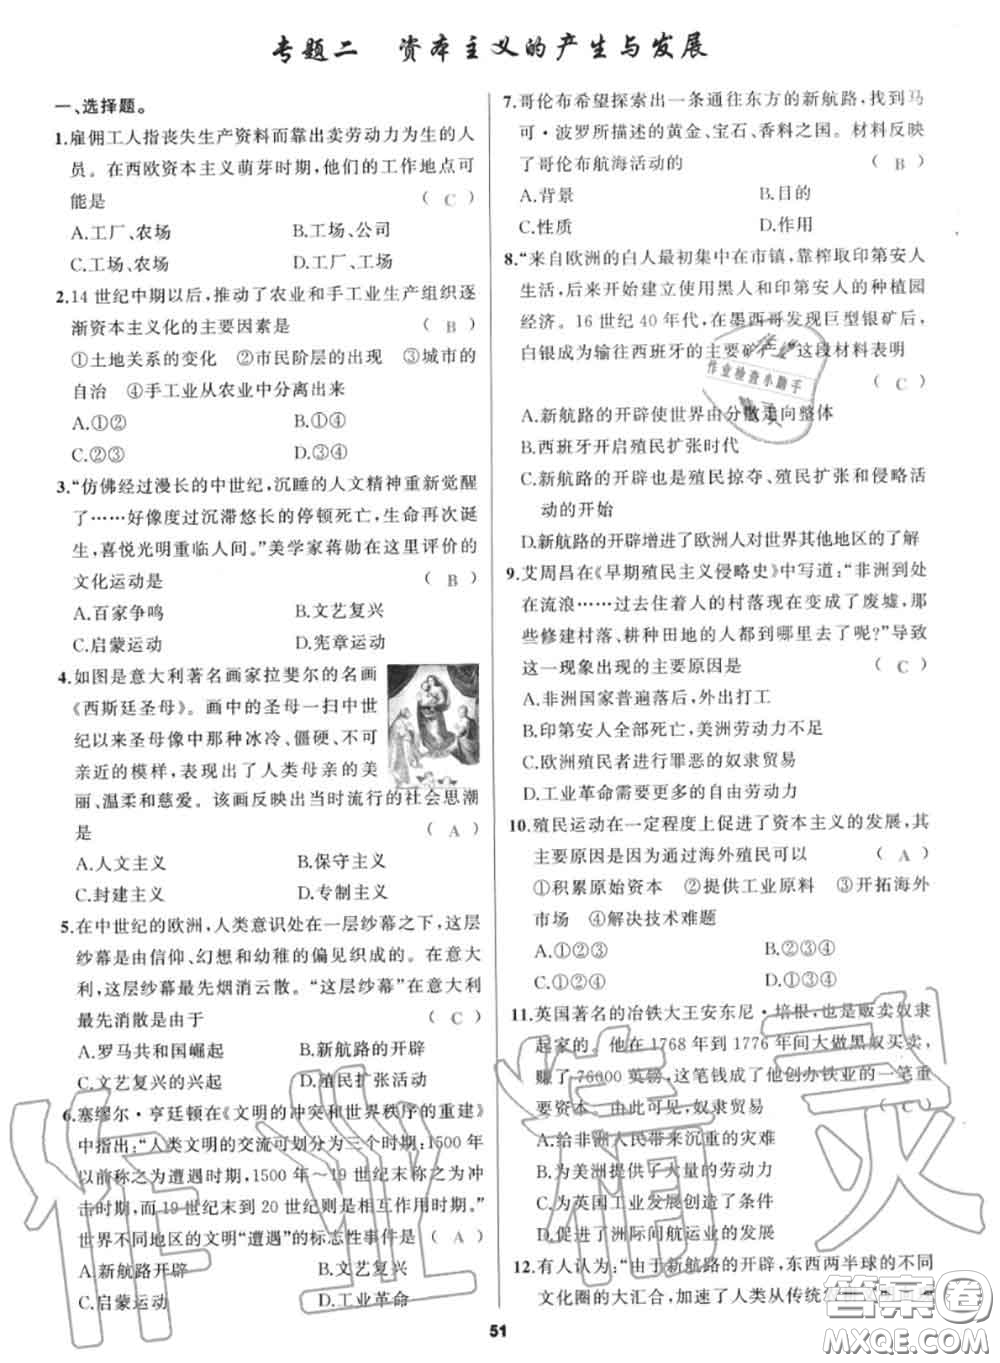 专题二 资本主义的产生与发展
一、选择题。
1.雇佣工人指丧失生产资料而靠出卖劳动力为生的人
员。在西欧资本主义萌芽时期,他们的工作地点可
能是 ( C )
A.工厂、农场 B.工场、公司
C.工场、农场 D.工厂、工场
2.14世纪中期以后,推动了农业和手工业生产组织逐
渐资本主义化的主要因素是 ( B )
①土地关系的变化 ②市民阶层的出现 ③城市的
自治 ④手工业从农业中分离出来
A.①② B.①③
C.②③ D.③④
3.“仿佛经过漫长的中世纪,沉睡的人文精神重新觉醒
了……好像度过沉滞悠长的停顿死亡,生命再次诞
生,喜悦光明重临人间。”美学家蒋勋在这里评价的
文化运动是 ( B )
A.百家争鸣 B.文艺复兴
C.启蒙运动 D.宪章运动
4.如图是意大利著名画家拉斐尔的名画
《西斯廷圣母》。画中的圣母一扫中世
纪以来圣母像中那种冰冷、僵硬、不可
亲近的模样,表现出了人类母亲的美
丽、温柔和慈爱。该画反映出当时流行的社会思潮
是 ( A )
A.人文主义 B.保守主义
C.封建主义 D.专制主义
5.在中世纪的欧洲,人类意识处在一层纱幕之下,这层
纱幕是由信仰、幻想和幼稚的偏见织成的。在意大
利,这层纱幕最先烟消云散。“这层纱幕”在意大利
最先消散是由于 ( C )
A.罗马共和国崛起 B.新航路的开辟
C.文艺复兴的兴起 D.殖民扩张活动
6.塞缪尔·亨廷顿在《文明的冲突和世界秩序的重建》
中指出:“人类文明的交流可划分为三个时期:1500年
以前称之为遭遇时期,1500年~19世纪末称之为冲
击时期,而19世纪末到20世纪则是相互作用时期。”
世界不同地区的文明“遭遇”的标志性事件是 ( A )
A.新航路开辟 B.文艺复兴
C.启蒙运动 D.工业革命
7.哥伦布希望探索出一条通往东方的新航路,找到马
可·波罗所描述的黄金、宝石、香料之国。材料反映
了哥伦布航海活动的 ( B )
A.背景 B.目的
C.性质 D.作用
8.“来自欧洲的白人最初集中在市镇,靠榨取印第安人
生活,后来开始建立使用黑人和印第安人的种植园
经济。16世纪40年代,在墨西哥发现巨型银矿后,
白银成为输往西班牙的主要矿产。”这段材料表明
( C )
作业检查小助手
A.新航路的开辟使世界由分散走向整体
B.西班牙开启殖民扩张时代
C.新航路的开辟也是殖民掠夺、殖民扩张和侵略活
动的开始
D.新航路的开辟增进了欧洲人对世界其他地区的了解
9.艾周昌在《早期殖民主义侵略史》中写道:“非洲到处
在流浪……过去住着人的村落现在变成了废墟,那
些修建村落、耕种田地的人都到哪里去了呢?”导致
这一现象出现的主要原因是 ( C )
A.非洲国家普遍落后,外出打工
B.印第安人全部死亡,美洲劳动力不足
C.欧洲殖民者进行罪恶的奴隶贸易
D.工业革命需要更多的自由劳动力
10.殖民运动在一定程度上促进了资本主义的发展,其
主要原因是因为通过海外殖民可以 ( A )
①积累原始资本 ②提供工业原料 ③开拓海外
市场 ④解决技术难题
A.①②③ B.②③④
C.①②④ D.①③④
11.英国著名的冶铁大王安东尼·培根,也是贩卖奴隶
起家的。他在1768年到1776年间大做黑奴买卖,
赚了76000英镑,这笔钱成了他创办铁业的一笔重
要资本。由此可见,奴隶贸易 ( C )
A.给非洲人民带来沉重的灾难
B.为美洲提供了大量的劳动力
C.为英国工业发展创造了条件
D.促进了洲际间航运业的发展
12.有人认为:“由于新航路的开辟,东西两半球的不同
文化圈的大汇合,加速了人类从传统
51
作业精灵
答案卷
MXQE.COM